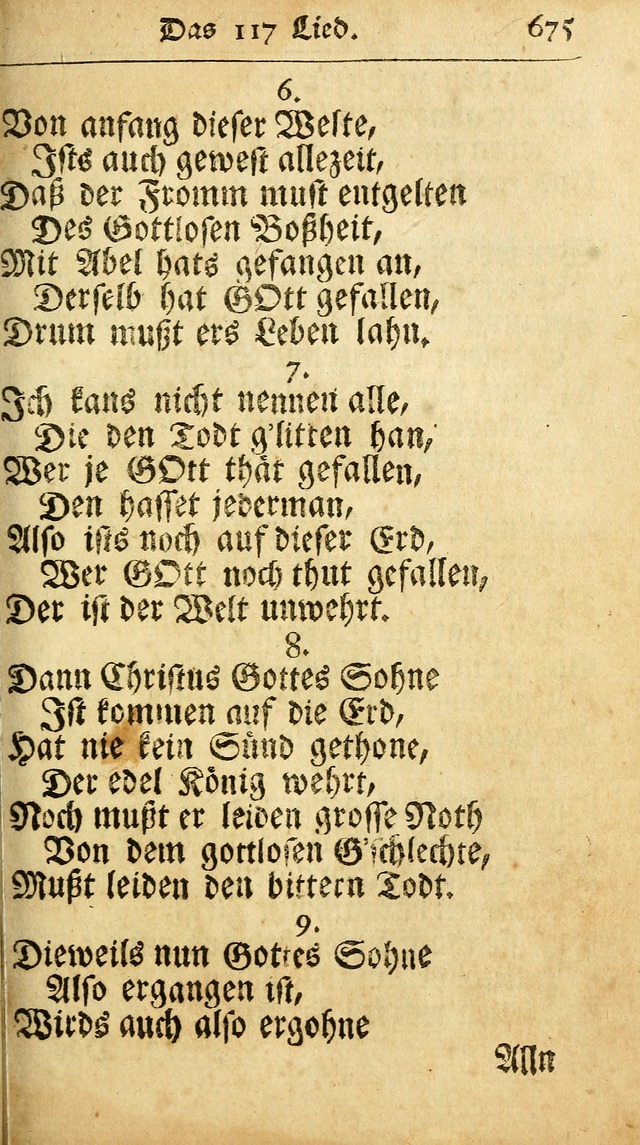 Das 117 Lied. 675
6.
Von anfang dieser Welte,
Ists auch gewest allezeit,
Daß der Fromm must entgelten
Des Gottlosen Boßheit,
Mit Abel hats gefangen an,
Derselb hat GOtt gefallen,
Drum mußt ers Leben lahn.
7.
Ich kans nicht nennen alle,
Die den Todt g'litten han,
Wer je GOtt thät gefallen,
Den hasset jederman,
Also ists noch auf dieser Erd,
Wer GOtt noch thut gefallen,
Der ist der Welt unwehrt.
8.
Dann Christus Gottes Sohne
Ist kommen auf die Erd,
Hat nie kein Sünd gethone,
Der edel König wehrt,
Noch mußt er leiden grosse Noth
Von dem gottlosen G'schlechte,
Mußt leiden den bittern Todt.
9.
Dieweils nun Gottes Sohne
Also ergangen ist,
Wirds auch also ergohne
Alln